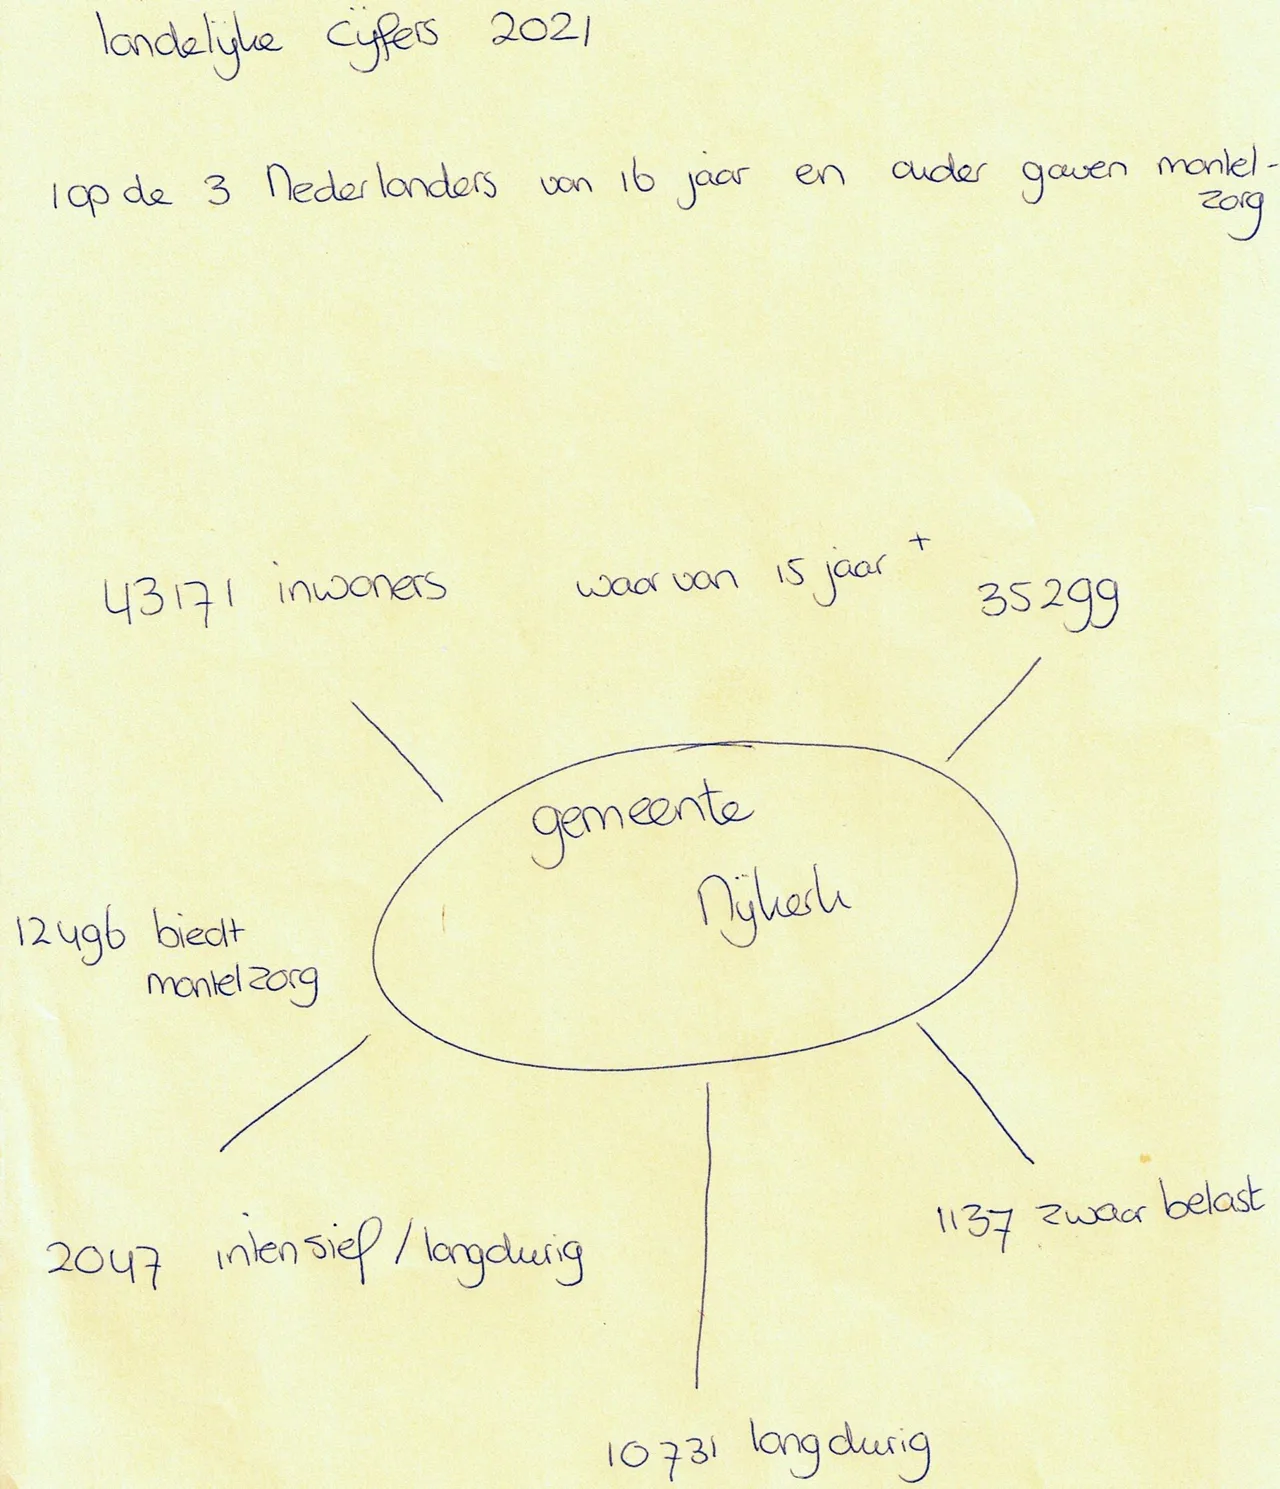 landelijke cijfers 2021
1 op de 3 Nederlanders van 16 jaar en ouder gaven mantel-
zorg
43171 inwoners waarvan 15 jaar + 35299
gemeente
Nijkerk
12496 biedt
mantelzorg
1137 zwaar belast
2047 intensief / langdurig
10731 langdurig